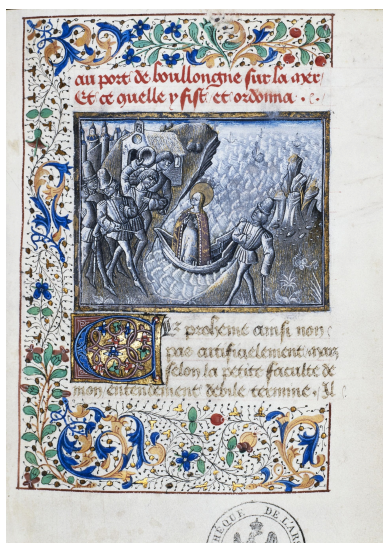 au port de boullongne sur la mer
Et ce quelle y fist et ordonna.
Ce proheme ainsi non
pas artificielement mais
selon la petite faculte de
mon entendement debile termine. Il
THÈQUE DE L'AR